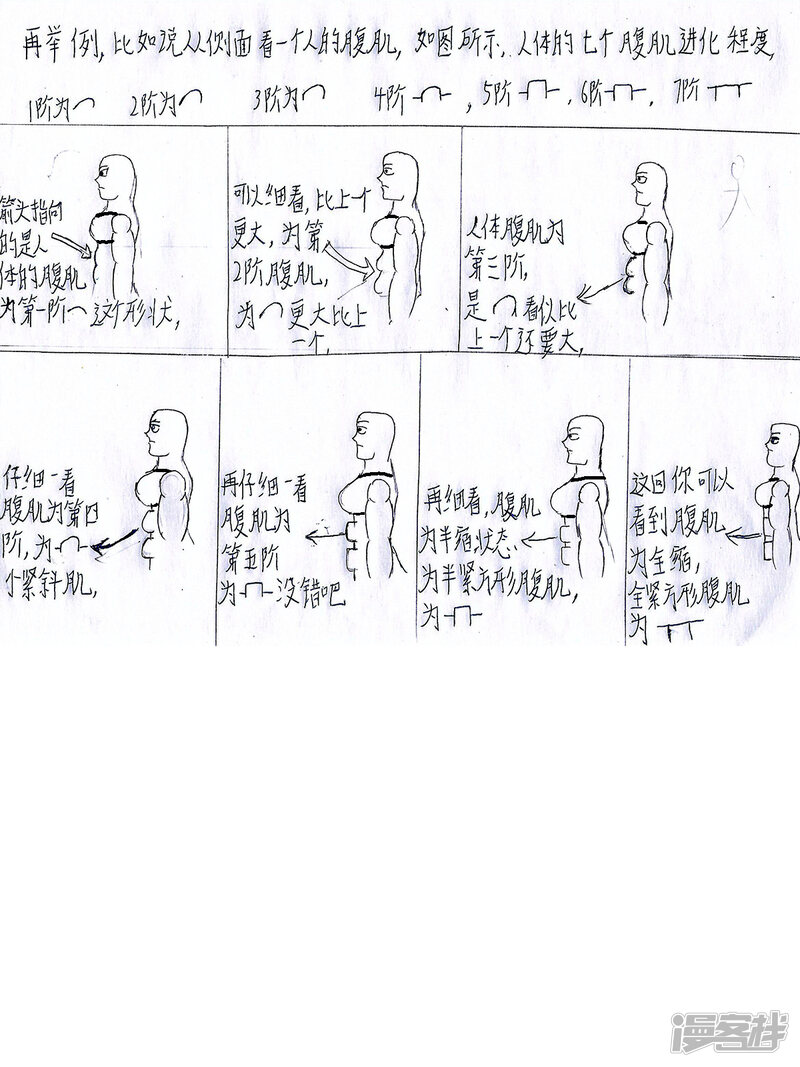 再举例,比如说从侧面看一个人的腹肌,如图所示,人体的七个腹肌进化程度,
1阶为⌒ 2阶为⌒ 3阶为⌒ 4阶 , 5阶 , 6阶 , 7阶
箭头指向
的是人
体的腹肌
为第一阶⌒这个形状,
可以细看,比上一个
更大,为第
2阶腹肌,
为⌒更大比上
一个,
人体腹肌为
第三阶,
是⌒,看似比
上一个还要大,
仔细一看
腹肌为第四
阶,为
小紧斜肌,
再仔细一看
腹肌为
第五阶
为 没错吧
再细看,腹肌
为半缩状态,
为半紧方形腹肌,
为
这回你可以
看到,腹肌
为全缩,
全紧方形腹肌
为
漫客栈